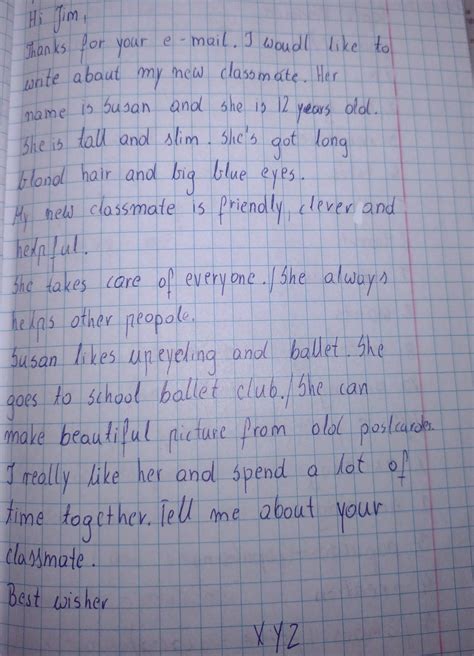 Hi Jim,
Thanks for your e-mail. I woudl like to
write about my new classmate. Her
name is Susan and she is 12 years old.
She is tall and slim. She's got long
blond hair and big blue eyes.
My new classmate is friendly, clever and
helpful.
She takes care of everyone./She always
helps other peopole.
Susan likes upcycling and ballet. She
goes to school ballet club./She can
make beautiful picture from old postcardes.
I really like her and spend a lot of
time together. Tell me about your
classmate.
Best wisher
XYZ